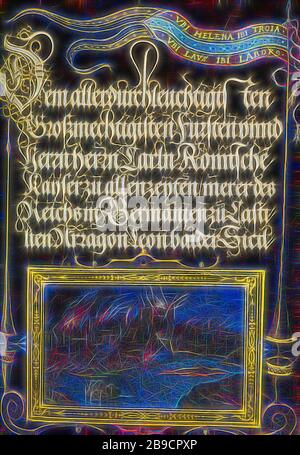 VBI HELENA IBI TROIA
VBI LAVS IBI LABOR
Dem allerdurchleuchtigisten
Großmechtigisten Fursten vnnd
Herrn herrn Carln Römische
Kayser zu allen zeyten merer des
Reichs in Germanien zu Casti
lien Arragon Leon baider Sicil